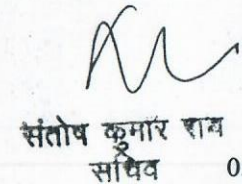 संतोष कुमार राय
सचिव 0